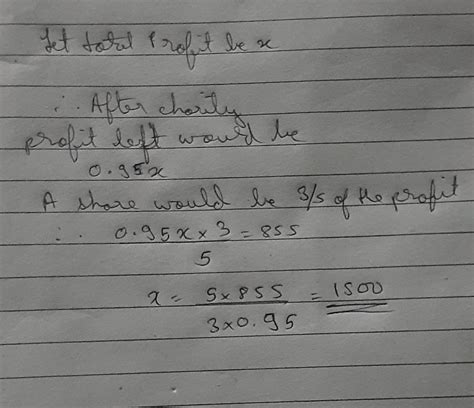 Let total Profit be x
∴ After charity
profit left would be
0.95x
A share would be 3/5 of the profit
∴ 0.95x × 3 = 855
5
x = 5×855 = 1500
3×0.95